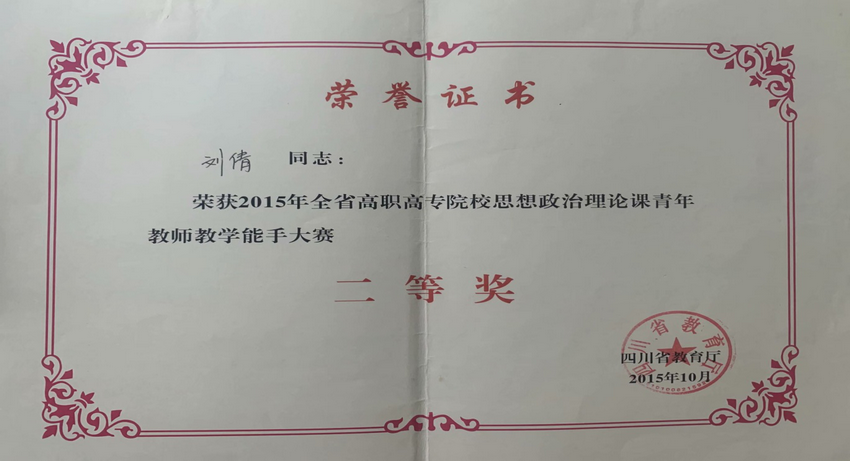 荣誉证书
刘倩 同志：
荣获2015年全省高职高专院校思想政治理论课青年
教师教学能手大赛
二等奖
四川省教育厅
四川省教育厅
2015年10月